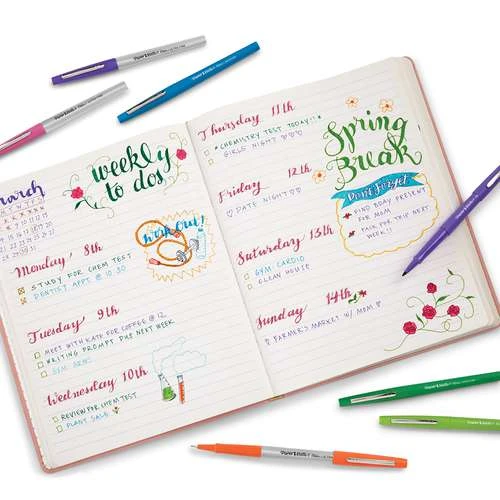 Paper Mate
Paper Mate
Paper Mate
March
weekly
to dos!
Monday 8th
STUDY FOR CHEM TEST
DENTIST APPT @ 10:30
work out!
Tuesday 9th
MEET WITH KATE FOR COFFEE @ 12
WRITING PROMPT DUE NEXT WEEK
GYM: ARMS
Wednesday 10th
REVIEW FOR CHEM TEST
PLANT SALE
Thursday 11th
CHEMISTRY TEST TODAY!!
GIRLS NIGHT
Friday 12th
DATE NIGHT
Saturday 13th
GYM: CARDIO
CLEAN HOUSE
Sunday 14th
FARMER'S MARKET W/ MOM
Spring
Break
Don't Forget
FIND BDAY PRESENT
FOR MOM
PACK FOR TRIP NEXT
WEEK!!
Paper Mate
Paper Mate
Paper Mate